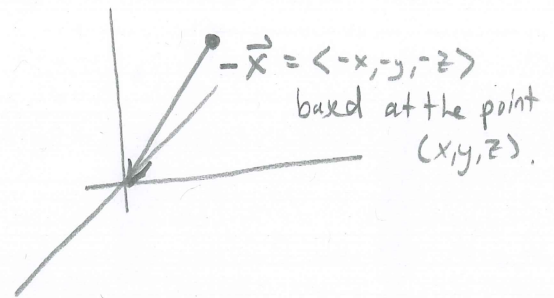 -x⃗ = <-x,-y,-z>
based at the point
(x,y,z).